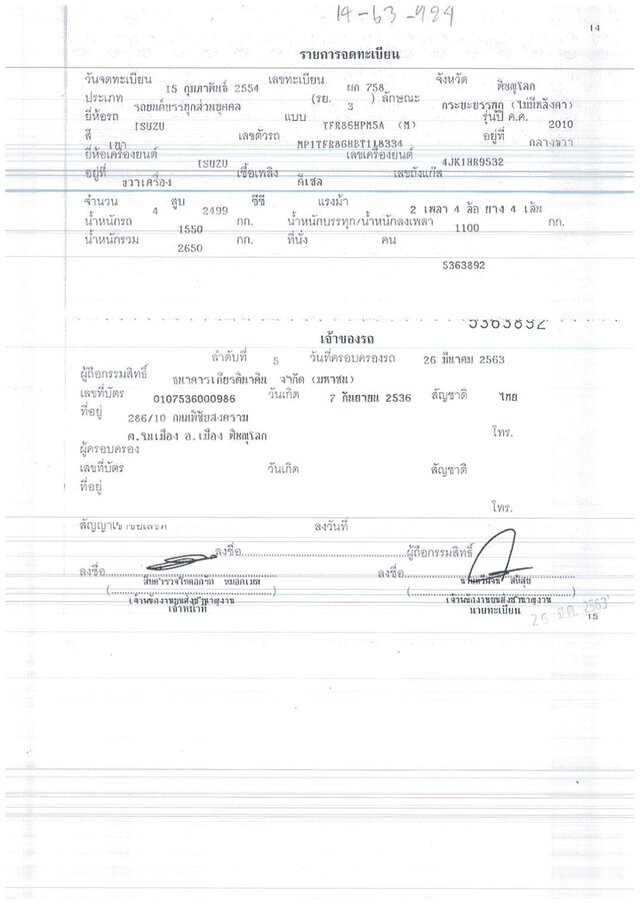 14-63-924
14
รายการจดทะเบียน
วันจดทะเบียน 15 กุมภาพันธ์ 2554 เลขทะเบียน ผก 758 จังหวัด พิษณุโลก
ประเภท รถยนต์บรรทุกส่วนบุคคล (รย. 3 ) ลักษณะ กระบะบรรทุก (ไม่มีหลังคา)
ยี่ห้อรถ ISUZU แบบ TFR86HPM5A (M) รุ่นปี ค.ศ. 2010
สี เทา เลขตัวรถ MP1TFR86HBT118334 อยู่ที่ กลางขวา
ยี่ห้อเครื่องยนต์ ISUZU เลขเครื่องยนต์ 4JK1HR9532
อยู่ที่ ขวาเครื่อง เชื้อเพลิง ดีเซล เลขถังแก๊ส
จำนวน 4 สูบ 2499 ซีซี แรงม้า 2 เพลา 4 ล้อ ยาง 4 เส้น
น้ำหนักรถ 1550 กก. น้ำหนักบรรทุก/น้ำหนักลงเพลา 1100 กก.
น้ำหนักรวม 2650 กก. ที่นั่ง คน
5363892
5363892
เจ้าของรถ
ลำดับที่ 5 วันที่ครอบครองรถ 26 มีนาคม 2563
ผู้ถือกรรมสิทธิ์ ธนาคารเกียรตินาคิน จำกัด (มหาชน)
เลขที่บัตร 0107536000986 วันเกิด 7 กันยายน 2536 สัญชาติ ไทย
ที่อยู่ 286/10 ถนนพิชัยสงคราม
ต.ในเมือง อ.เมือง พิษณุโลก โทร.
ผู้ครอบครอง
เลขที่บัตร วันเกิด สัญชาติ
ที่อยู่
โทร.
สัญญาเช่าซื้อเลขที่ ลงวันที่
ลงชื่อ ผู้ถือกรรมสิทธิ์
ลงชื่อ ลงชื่อ
เจ้าพนักงานขนส่งชำนาญงาน เจ้าพนักงานขนส่งชำนาญงาน
เจ้าหน้าที่ นายทะเบียน
มี.ค. 2563
15